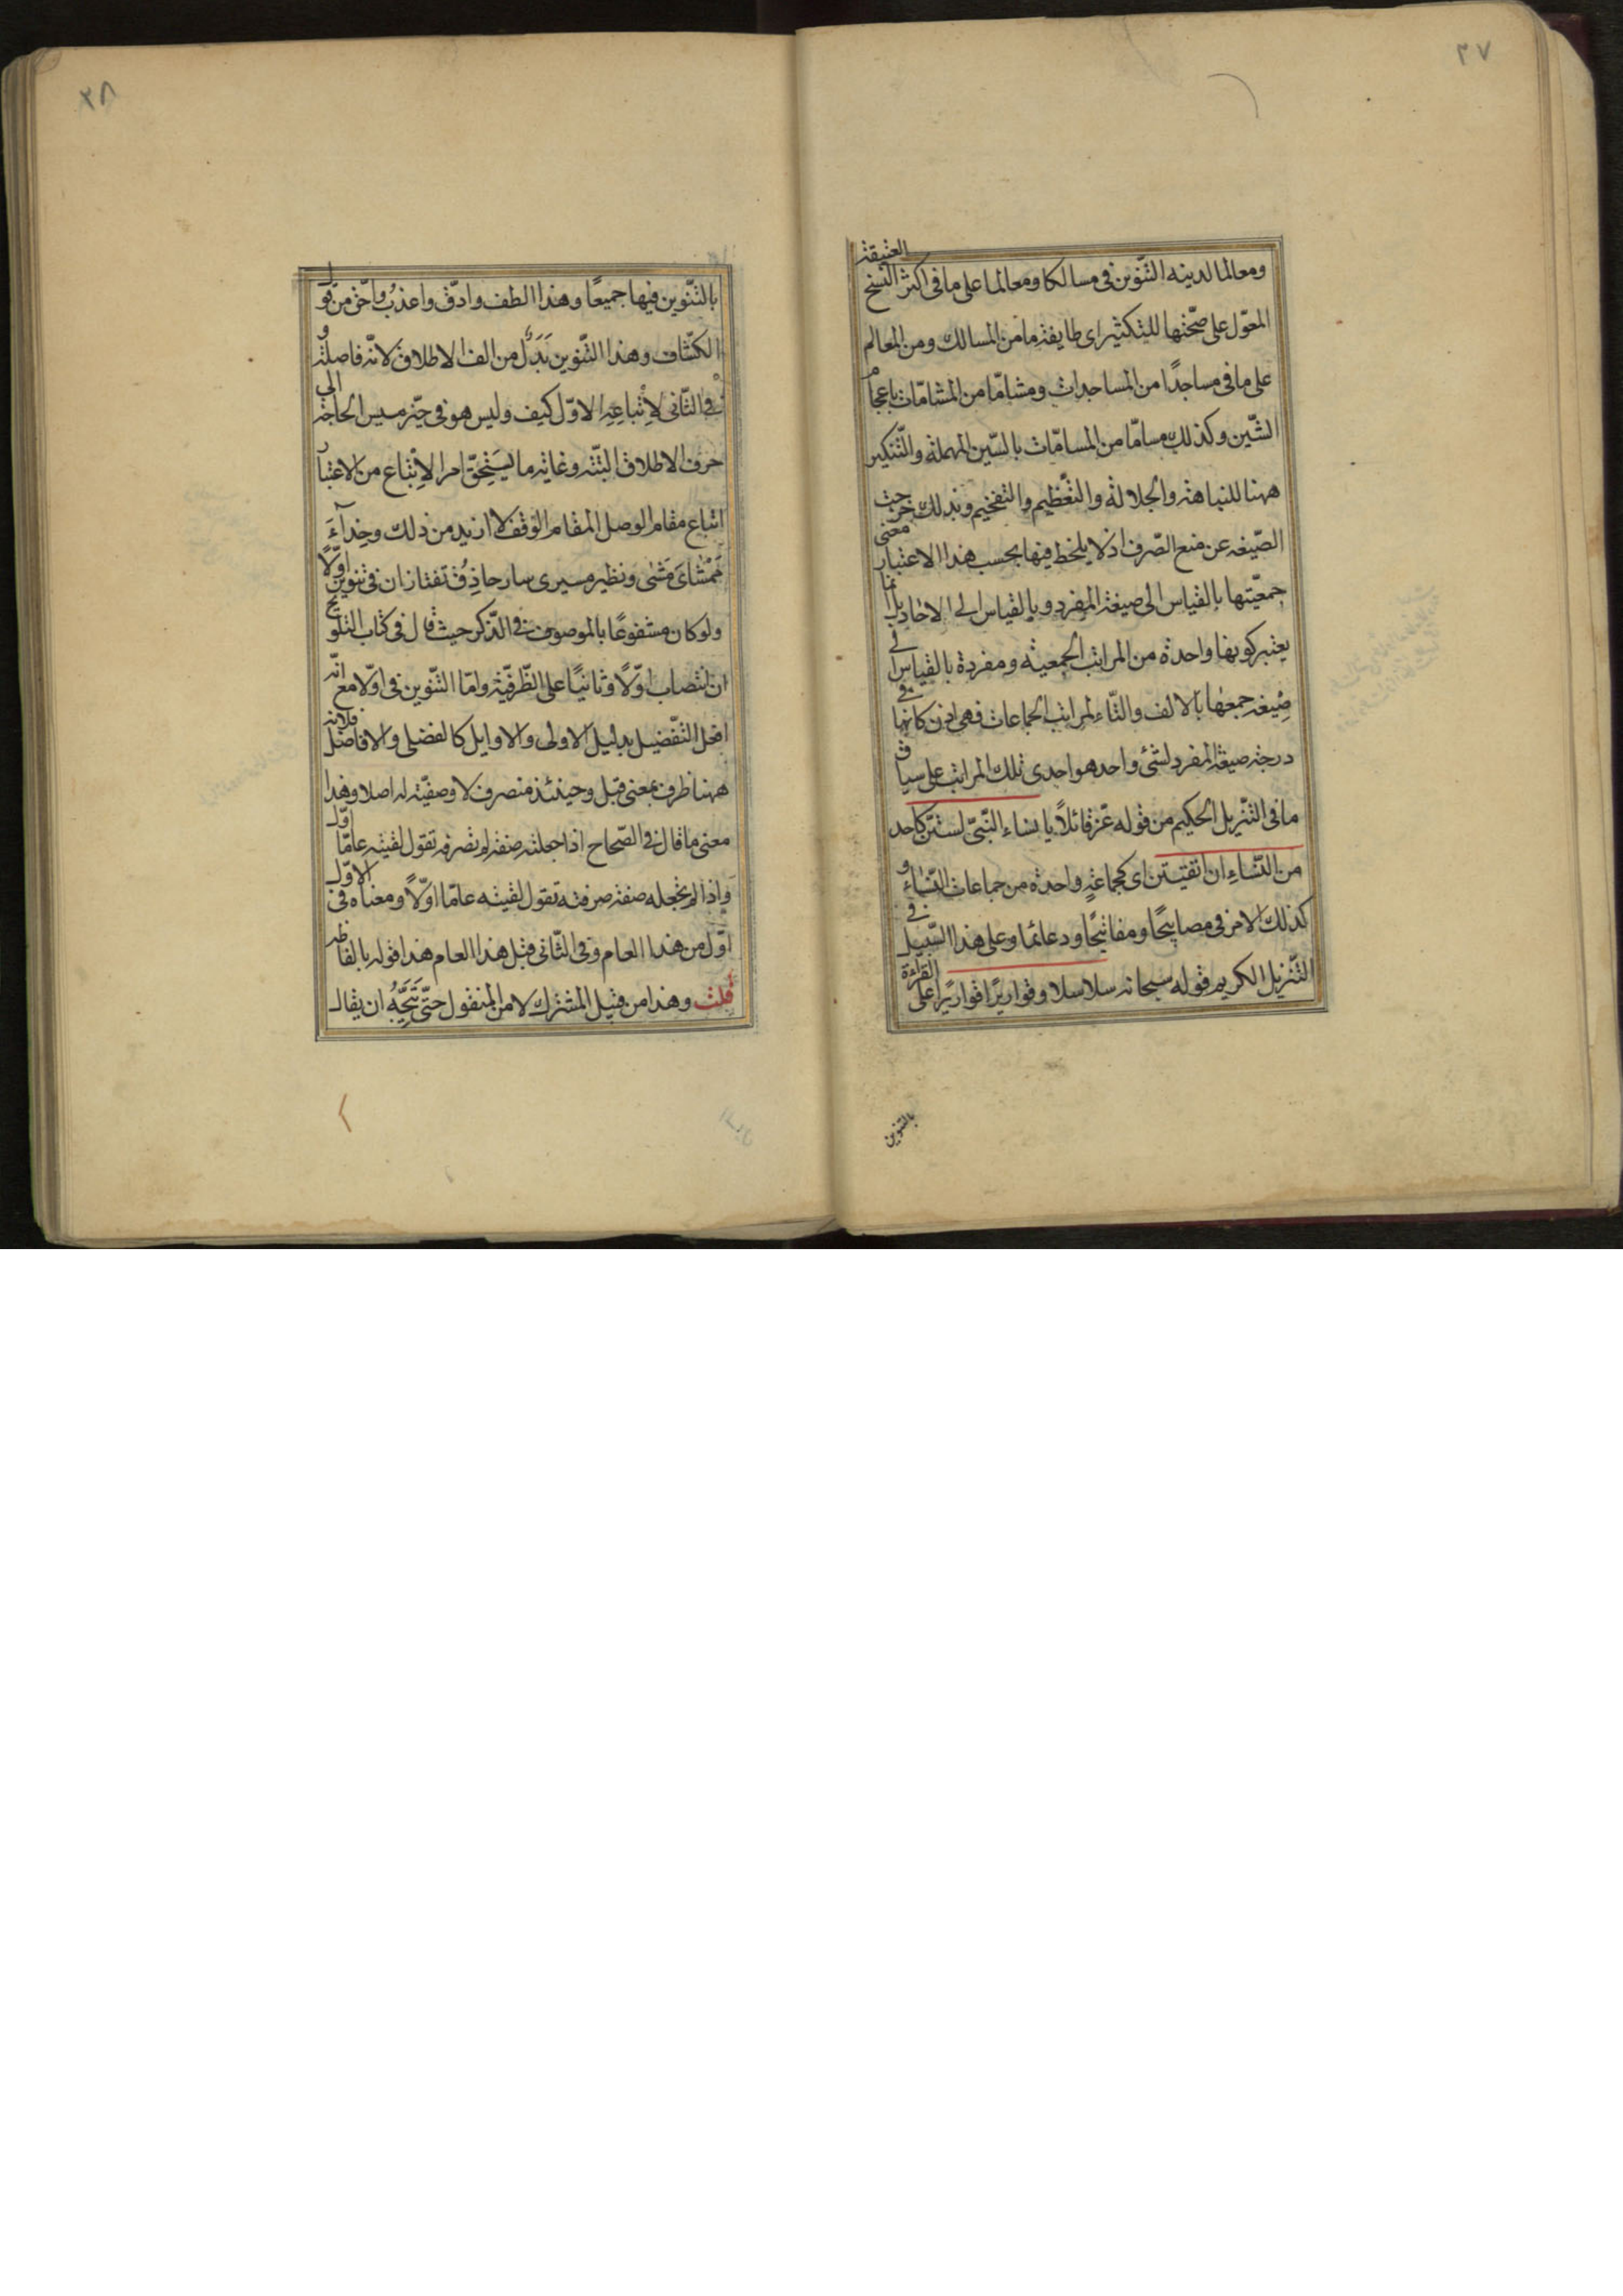 ٢٧
ومعالما لدينه التّنوين فى مسالكا ومعالما على ما فى اكثر النسخ العتيقة
المعوّل على صحّتها للتكثير اى طايفة ما من المسالك ومن المعالم
على ما فى مساجدًا من المساجدات ومشامّا من المشامّات باعجام
الشّين وكذلك مسامّا من المسامّات بالسّين المهملة والتّنكير
ههنا للنباهة والجلالة والتّعظيم والتفخيم وبذلك خرجت
الصّيغه عن منع الصّرف اذ لا يلحظ فيها بحسب هذا الاعتبار معنى
جمعيّتها بالقياس الى صيغة المفرد وبالقياس الى الاحاد بل انما
يعتبر كونها واحدة من المراتب الجمعيّه ومفردة بالقياس الى
صيغه جمعها بالالف والتّاء لمراتب الجماعات فهى اذن كانها فى
درجة صيغة المفرد لشئ واحد هو احدى تلك المراتب على سياق
ما فى التنّزيل الحكيم من قوله عزّ قائلاً يا نساء النّبىّ لستنّ كاحد
من النّساءِ ان اتقيتنّ اى كجماعةٍ واحدة من جماعات النّساء و
كذلك الامر فى مصابيحًا ومفاتيحًا ودعائما وعلى هذا السّبيل فى
التّنزيل الكريم قوله سبحانه سلاسلا وقواريرًا قواريرًا على القراءة
بالتنوين
٢٨
بالتّنوين فيها جميعًا وهذا الطف وادقّ واعذب واحقّ من قول
الكشّاف وهذا التّنوين بَدَلٌ من الف الاطلاق لانّه فاصلة و
فى الثّانى لإتباعِهِ الاوّل كيف وليس هو فى حيّز مسيس الحاجة الى
حرف الاطلاق البتّة وغاية ما يَستحِقّ امر الإتباع من الاعتبار
اتباع مقام الوصل المقام الوقف لا ازيد من ذلك وحِذاءَ
مَمْشاىَ مَشٰى ونظير مسيرى سار حاذِقُ تفتازان فى تنوين اوّلًا
ولو كان مشفوعًا بالموصوف فى الذّكر حيث قال فى كتاب التلويح
ان انتصاب اوّلًا وثانيًا على الظّرفيّة وامّا التّنوين فى اوّلا مع انّه
افعل التفّضيل بدليل الاولى والاوايل كالفضلى والافاضل فلانّه
ههنا ظرف بمعنى قبل وحينئذ منصرف لا وصفيّة له اصلا وهذا
معنى ما قال فى الصّحاح اذا جعلته صفة لم تصرفه تقول لقيته عامّا اوّل
واذا لم تجعله صفة صرفته تقول لقيته عامّا اوّلاً ومعناه فى الاوّل
اوّل من هذا العام وفى الثّانى قبل هذا العام هذا قوله بالفاظه
قلت وهذا من قبيل المشترك لا من المنقول حتّى يَتَّجِهُ ان يقال